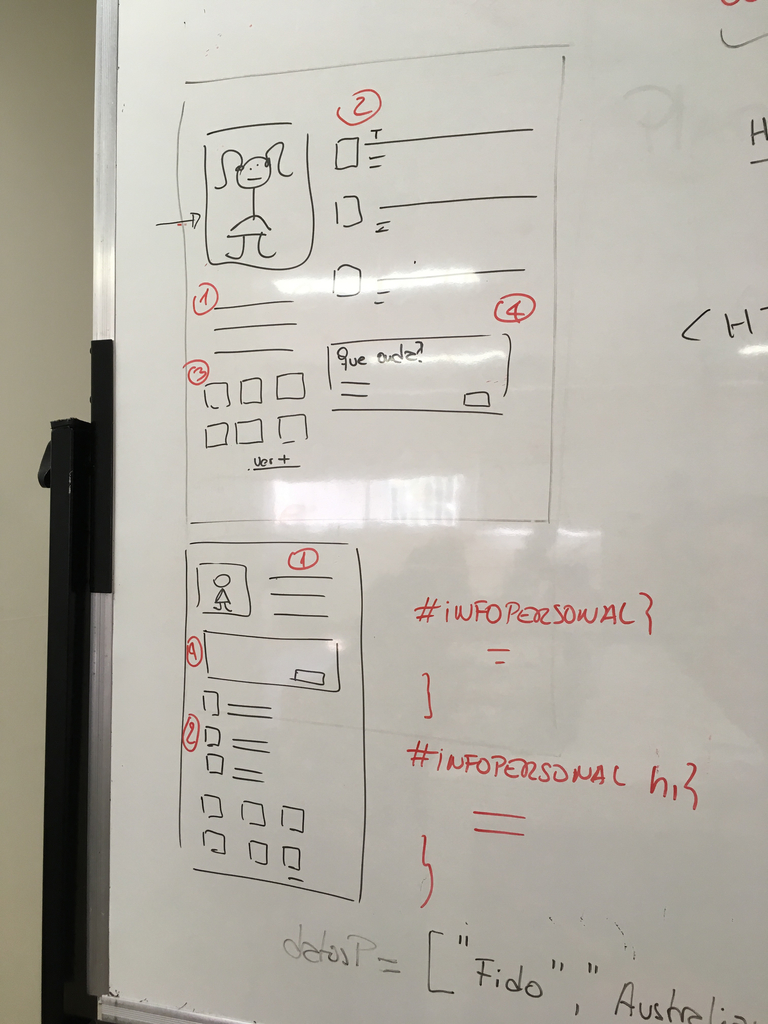 2
T
1
4
Que onda?
3
ver +
H
<HT
1
4
2
#INFOPERSONAL }
}
#INFOPERSONAL h1 {
}
datosP = ["Fido", "Australia